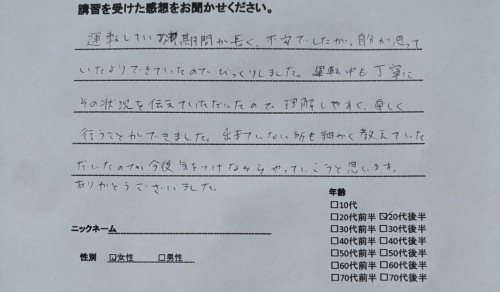 講習を受けた感想をお聞かせください。
運転していない期間が長く、不安でしたが、自分が思って
いたよりできていたのでびっくりしました。運転中も丁寧に
その状況を伝えていただいたので理解しやすく、楽しく
行うことができました。出来ていない所も細かく教えていた
だいたので今後気をつけながらやっていこうと思います。
ありがとうございました。
年齢
□10代
□20代前半 ☑20代後半
□30代前半 □30代後半
□40代前半 □40代後半
□50代前半 □50代後半
□60代前半 □60代後半
□70代前半 □70代後半
ニックネーム
性別 ☑女性 □男性